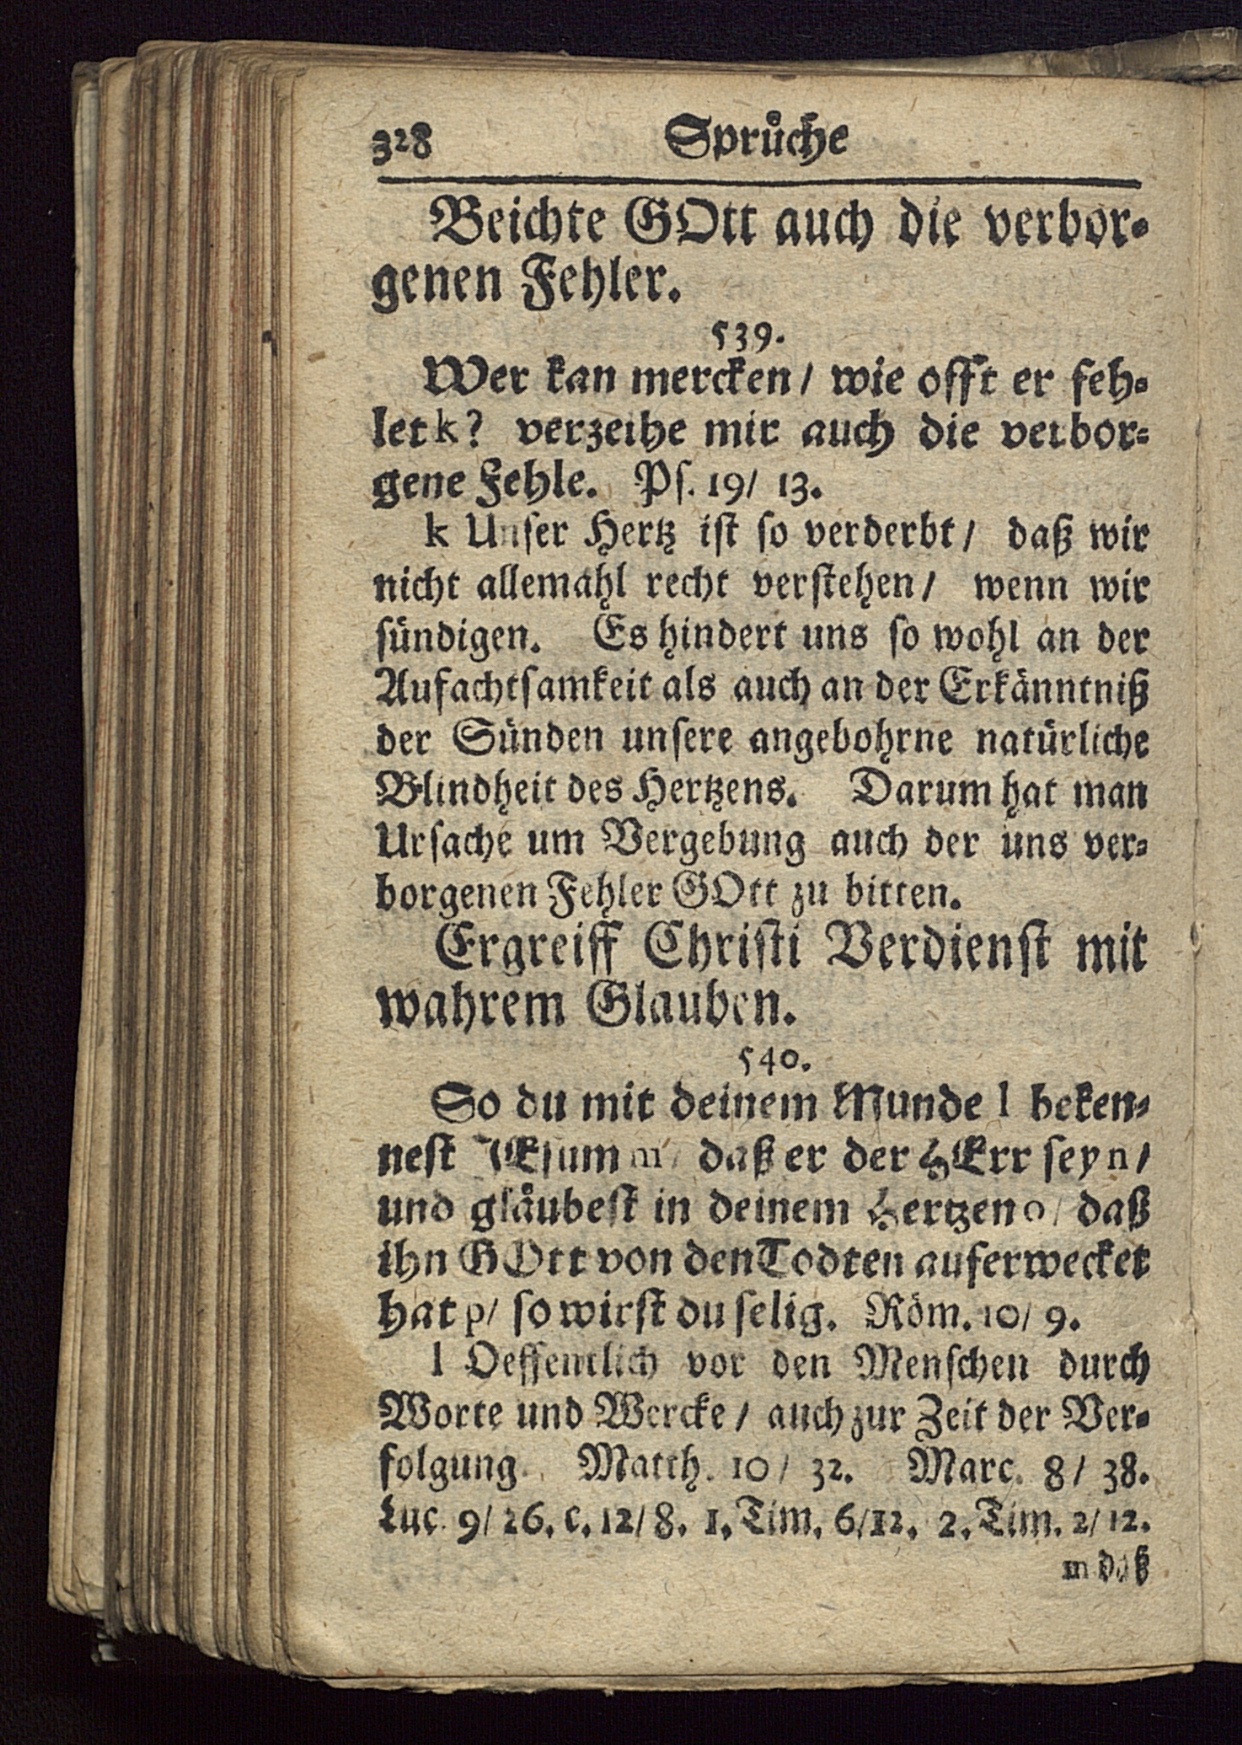 328 Sprüche
Beichte GOtt auch die verbor-
genen Fehler.
539.
Wer kan mercken / wie offt er feh-
let k? verzeihe mir auch die verbor-
gene Fehle. Ps. 19/ 13.
k Unser Hertz ist so verderbt / daß wir
nicht allemahl recht verstehen / wenn wir
sündigen. Es hindert uns so wohl an der
Aufachtsamkeit als auch an der Erkänntniß
der Sünden unsere angebohrne natürliche
Blindheit des Hertzens. Darum hat man
Ursache um Vergebung auch der uns ver-
borgenen Fehler GOtt zu bitten.
Ergreiff Christi Verdienst mit
wahrem Glauben.
540.
So du mit deinem Munde l beken-
nest JEsum m / daß er der HErr sey n /
und gläubest in deinem Hertzen o / daß
ihn GOtt von den Todten auferwecket
hat p / so wirst du selig. Röm. 10/ 9.
l Oeffentlich vor den Menschen durch
Worte und Wercke / auch zur Zeit der Ver-
folgung. Matth. 10 / 32. Marc. 8 / 38.
Luc. 9/ 26. c. 12/ 8. 1. Tim. 6/12. 2. Tim. 2/ 12.
m daß